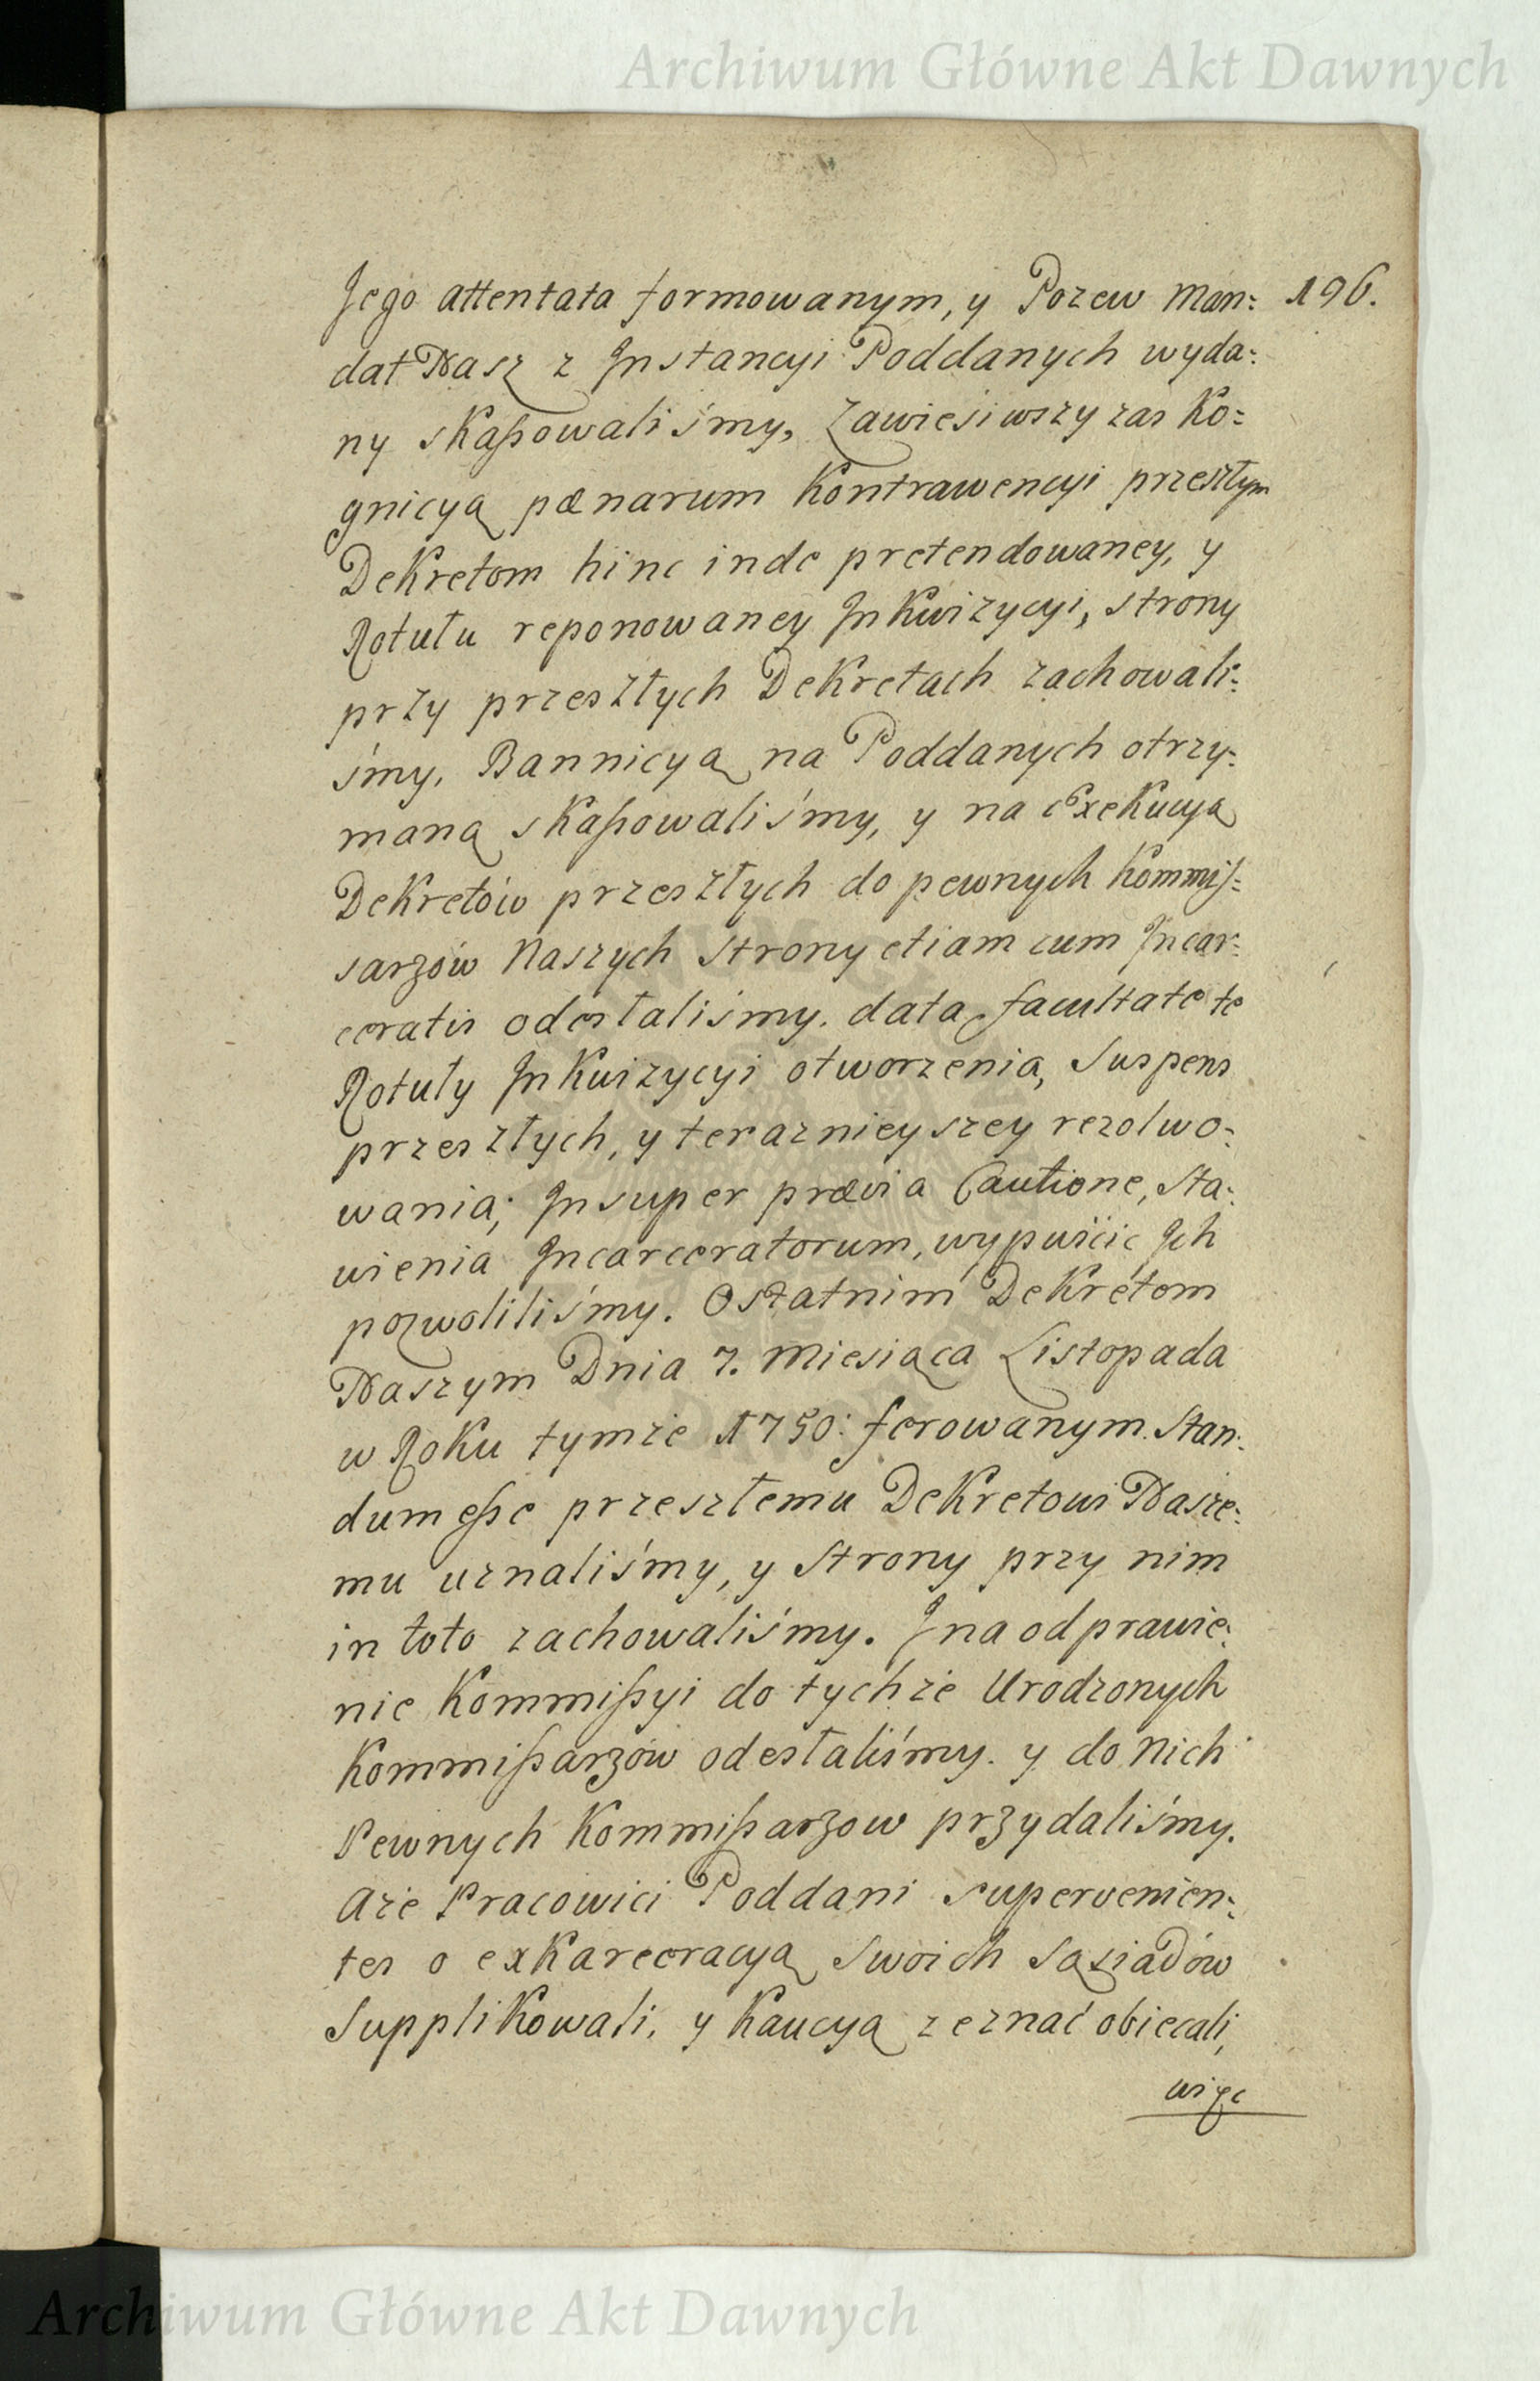 Archiwum Główne Akt Dawnych
196.
Jego attentata formowanym, y Pozew Man:
dat Nasz z Instancyi Poddanych wyda:
ny skaßowaliśmy, Zawiesiwszy zas Ko:
gnicyą pænarum Kontrawencyi przeszłym
Dekretom hinc inde pretendowaney, y
Rotułu reponowaney Inkwizycyi, strony
przy przeszłych Dekretach zachowali:
śmy, Bannicyą na Poddanych otrzy:
maną skaßowaliśmy, y na Exekucyą
Dekretów przeszłych do pewnych Kommis:
sarzów Naszych strony etiam cum Incar:
ceratis odesłaliśmy. data facultate te
Rotuły Inkwizycyi otworzenia, Suspens
przeszłych, y teraznieyszey rezolwo:
wania; Insuper prævia Cautione, sta:
wienia Incarceratorum, wypuścić Ich
pozwoliliśmy. Ostatnim Dekretom
Naszym Dnia 7. Miesiąca Listopada
w Roku tymże 1750: ferowanym. Stan:
dum eße przeszłemu Dekretowi Nasze:
mu uznaliśmy, y Strony przy nim
in toto zachowaliśmy. I na odprawie:
nie Kommißyi do tychże Urodzonych
Kommißarzów odesłaliśmy. y do Nich
Pewnych Kommißarzow przydaliśmy.
Aże Pracowici Poddani supervenien:
tes o exkarceracyą swoich Sąziadów
Supplikowali, y Kaucyą zeznać obiecali,
więc
Archiwum Główne Akt Dawnych